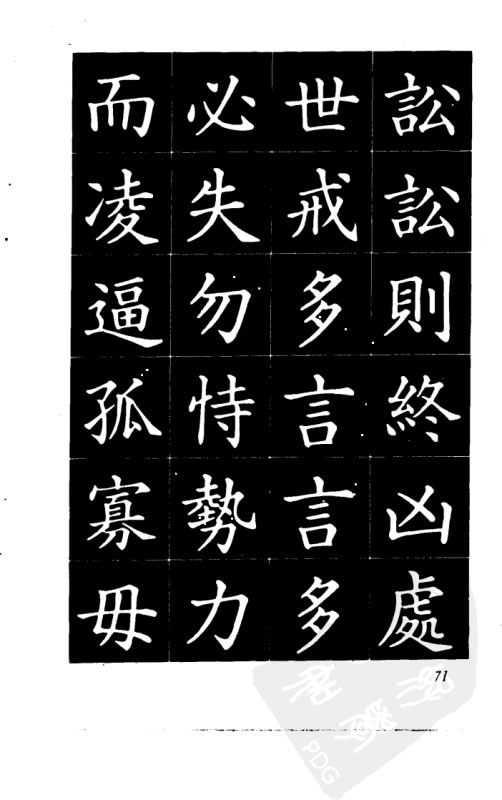 訟訟則終凶處
世戒多言言多
必失勿恃勢力
而凌逼孤寡毋
71
PDG